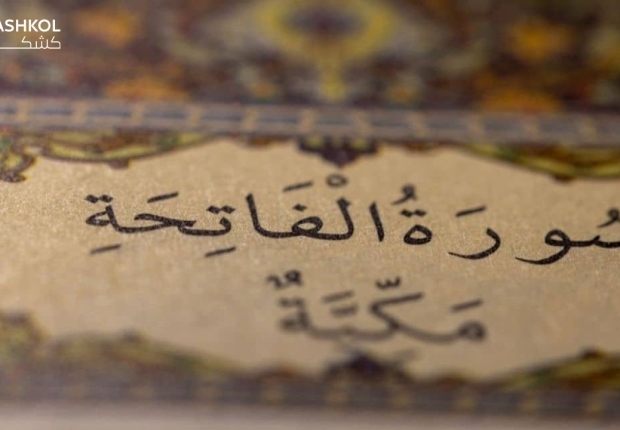 ASHKOL
كشك
سُورَةُ الْفَاتِحَةِ
مَكِّيَّةٌ